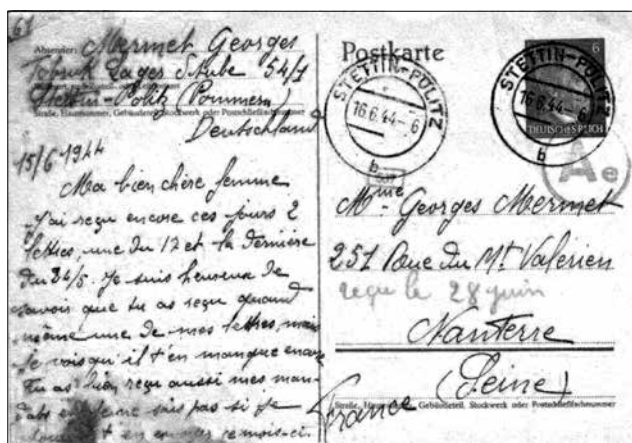 61
Absender: Mermet Georges
Tobruk Lager Stube 54/1
Stettin-Politz (Pommern)
Straße, Hausnummer, Gebäudeteil, Stockwerk oder Postschließfachnummer
Deutschland
15/6-1944
Ma bien chère femme
J'ai reçu encore ces jours 2
lettres, une du 17 et la dernière
du 24/5. Je suis heureux de
savoir que tu as reçu quand
même une de mes lettres, mais
je vois qu'il t'en manque encore
Tu as bien reçu aussi mes man-
dats et je ne sais pas si je
t'en ce mois-ci.
Postkarte
STETTIN-PÖLITZ
16.6.44-6
b
6
DEUTSCHES REICH
STETTIN-PÖLITZ
16.6.44-6
b
Ae
Mme Georges Mermet
251 Rue du Mt Valérien
reçu le 28 juin
Nanterre
(Seine)
France
Straße, Hausnummer, Gebäudeteil, Stockwerk oder Postschließfachnummer